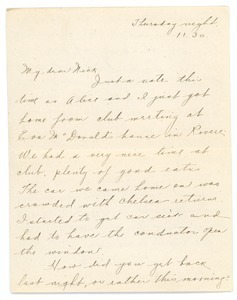 Thursday night.
11.30.
My dear Nick,
Just a note this
time as Alice and I just got
home from club meeting at
Eva McDonald's house in Revere.
We had a very nice time at
club, plenty of good eats.
The car we came home on was
crowded with Chelsea returns.
I started to get car sick and
had to have the conductor open
the window.
How did you get back
last night, or rather this morning